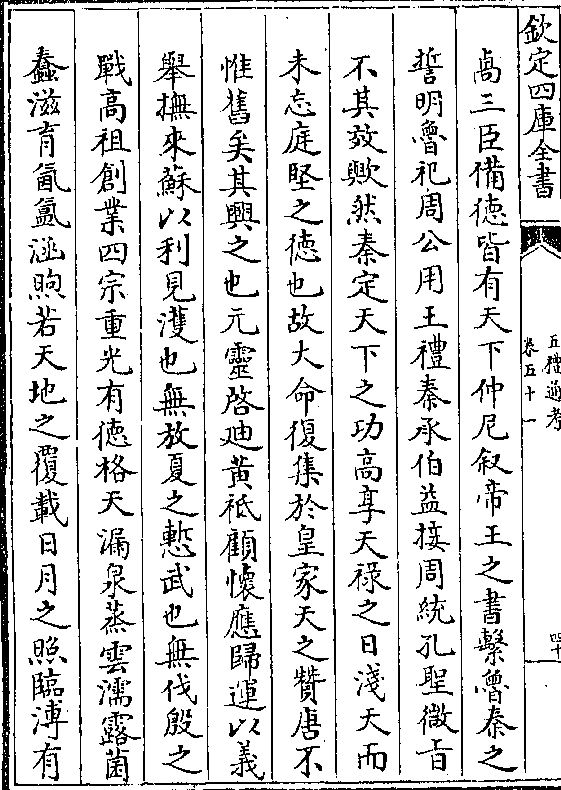 欽定四庫全書
五禮通考
卷五十一
四十
卨三臣備德皆有天下仲尼叙帝王之書繫魯秦之
誓明魯祀周公用王禮秦承伯益接周統孔聖微旨
不其效歟然秦定天下之功高享天祿之日淺天而
未忘庭堅之德也故大命復集於皇家天之贊唐不
惟舊矣其興之也元靈啓廸黃祗顧懷應歸運以義
舉撫來蘇以利見濩也無放夏之慙武也無伐殷之
戰高祖創業四宗重光有德格天漏泉蒸雲濡露菌
蠢滋育氤氳涵煦若天地之覆載日月之照臨溥有